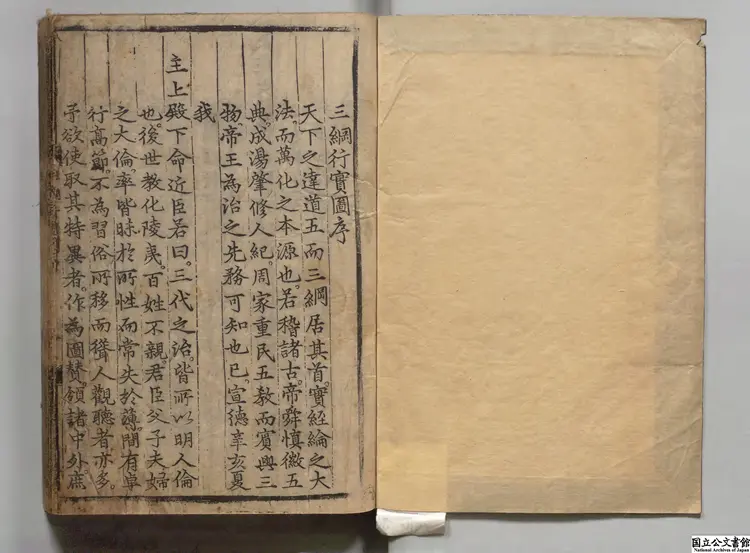 三綱行實圖序
天下之達道五而三綱居其首。實經綸之大
法。而萬化之本源也。若稽諸古。帝舜慎徽五
典。成湯肇修人紀。周家重民五教而賓興三
物。帝王為治之先務可知也已。宣德辛亥夏
我
主上殿下命近臣若曰。三代之治。皆所以明人倫
也。後世教化陵夷。百姓不親。君臣父子夫婦
之大倫。率皆昧於所性而常失於薄。間有卓
行高節。不為習俗所移而聳人觀聽者亦多。
予欲使取其特異者。作為圖贊。頒諸中外。庶
国立公文書館
National Archives of Japan